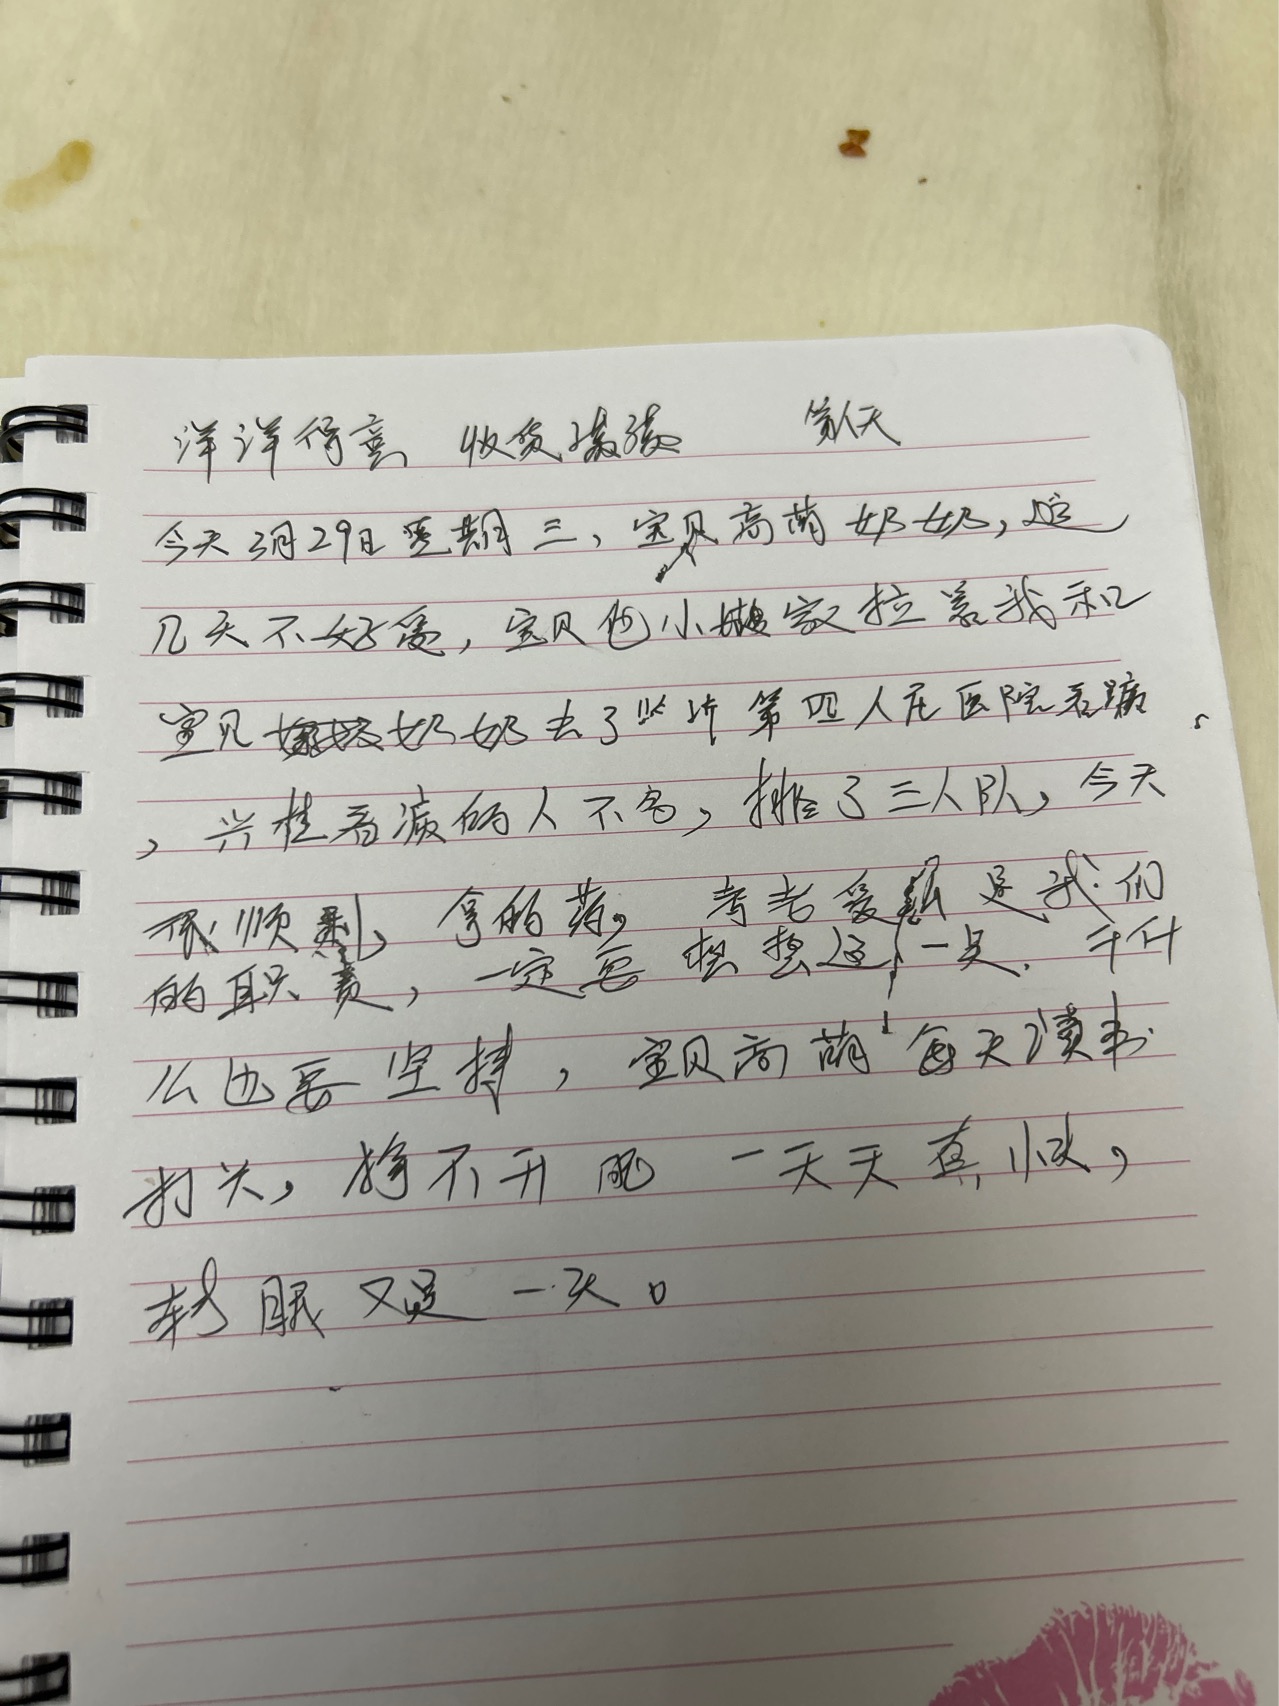 洋洋得意 收货满满
今天3月29日星期三，宝贝高萌奶奶，这
几天不好受，宝贝他小家拉着我和
宝贝奶奶去了第四人民医院看病
，看病的人不多，排了三人队，今天
很顺利，拿的药。 考老爱 是我们
的职责，一定要想想这一点. 干什
么也要坚持，宝贝高萌每天读书
打头，将不开 一天天真快，
转眼又是一天。